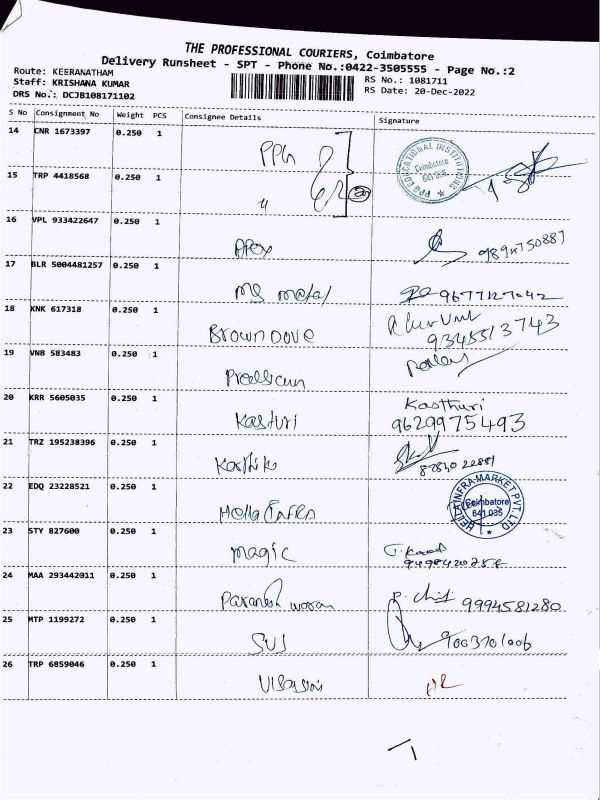 THE PROFESSIONAL COURIERS, Coimbatore
Delivery Runsheet - SPT - Phone No.:0422-3505555 - Page No.:2
Route: KEERANATHAM
Staff: KRISHANA KUMAR
DRS No.: DCJB108171102
RS No.: 1081711
RS Date: 20-Dec-2022
S No Consignment No Weight PCS Consignee Details Signature
14 CNR 1673397 0.250 1 PPG
PPG EDUCATIONAL INSTITUTIONS Coimbatore 641 035
15 TRP 4418568 0.250 1 4
16 VPL 933422647 0.250 1 Apex
17 BLR 5004481257 0.250 1 MS metal 9677127042
18 KNK 617318 0.250 1 Brown Dove 9345513743
19 VNB 583483 0.250 1
20 KRR 5605035 0.250 1 Kasturi Kasthuri
9629975493
21 TRZ 195238396 0.250 1 Karthik
22 EDQ 23228521 0.250 1 Hella Infra
HELLA INFRA MARKET PVT. LTD Coimbatore 641 035
23 STY 827600 0.250 1 magic
24 MAA 293442011 0.250 1 9994581280
25 MTP 1199272 0.250 1 SVS 9003701006
26 TRP 6859046 0.250 1